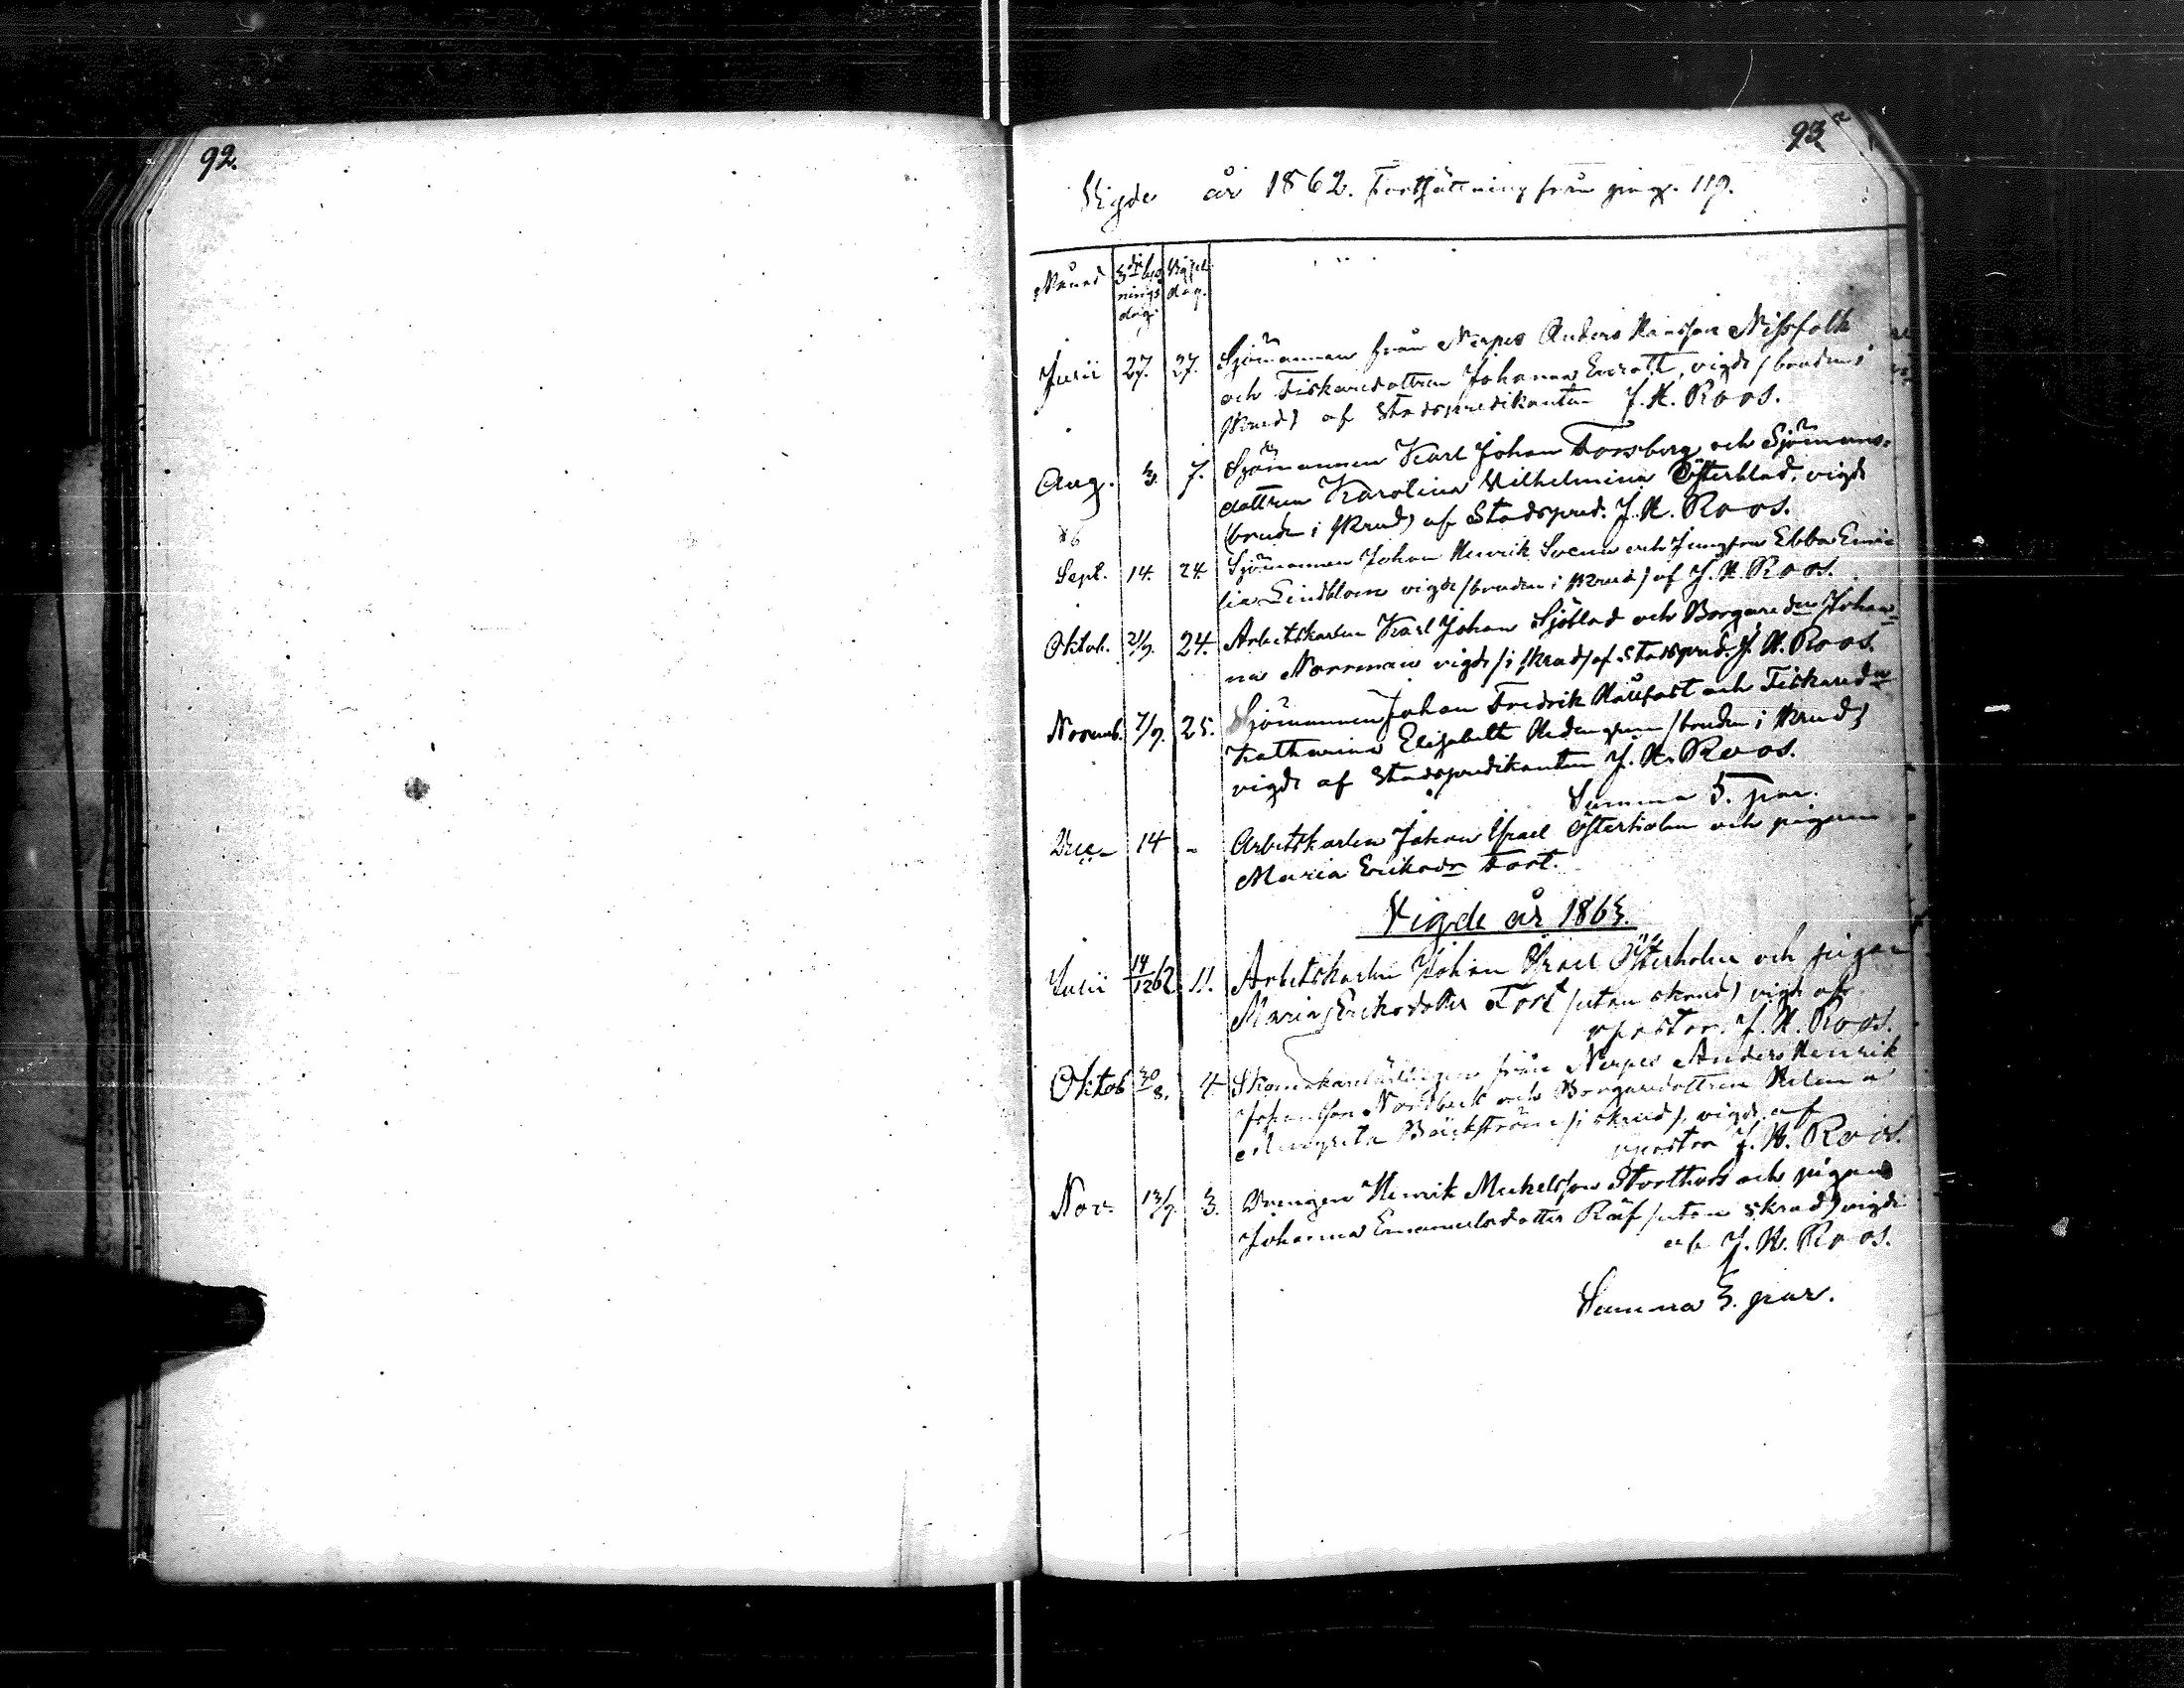 92.
93
Vigde år 1862. Fortsättning från pag. 119.
Månad 3die lys- Vigsel-
nings dag.
dag.
Junii 27. 27. Sjömannen från Nerpes Anders Hansson Nissfolk
och Fiskaredottren Johanna Enrott, vigde (brudens
skrud) af Stadspredikanten J. H. Roos.
Aug. 3. 7. Sjömannen Karl Johan Forsberg och Sjömans-
dottren Karolina Vilhelmina Österblad, vigde
(bruden i skrud) af Stadspred. J. H. Roos.
Sept. 14. 24. Sjömannen Johan Henrik Svens och Jungfrun Ebba Emi-
lia Lindblom vigde (bruden i skrud) af J. H. Roos.
Oktob. 21/9. 24. Arbetskarlen Karl Johan Sjöblad och Borgaredn Johan-
na Norrman vigde (i skrud) af Stadspred. J. H. Roos.
Novemb. 7/9. 25. Sjömannen Johan Fredrik och Fiskaredn
Katharina Elisabeth Hedengren (bruden i skrud)
vigde af Stadspredikanten J. H. Roos.
Summa 5. par.
Dec. 14 - Arbetskarlen Johan Israel Österholm och pigan
Maria Eriksdr Tort.
Vigde år 1863.
Junii 14/12 62 11. Arbetskarlen Johan Israel Österholm och pigan
Maria Eriksdotter Tort (utan skrud) vigde af
vpastor. J. H. Roos.
Oktob 30/8. 4 Skomakarelärlingen från Nerpes Anders Henrik
Johansson Nordbeck och Borgaredottren Helena
Margreta Bäckström (i skrud), vigde af
vpastor J. H. Roos.
Nov. 13/9. 3. Drengen Henrik Mickelsson Storthors och pigan
Johanna Emanuelsdotter Räf (utan skrud) vigde
af J. H. Roos.
Summa 3. par.